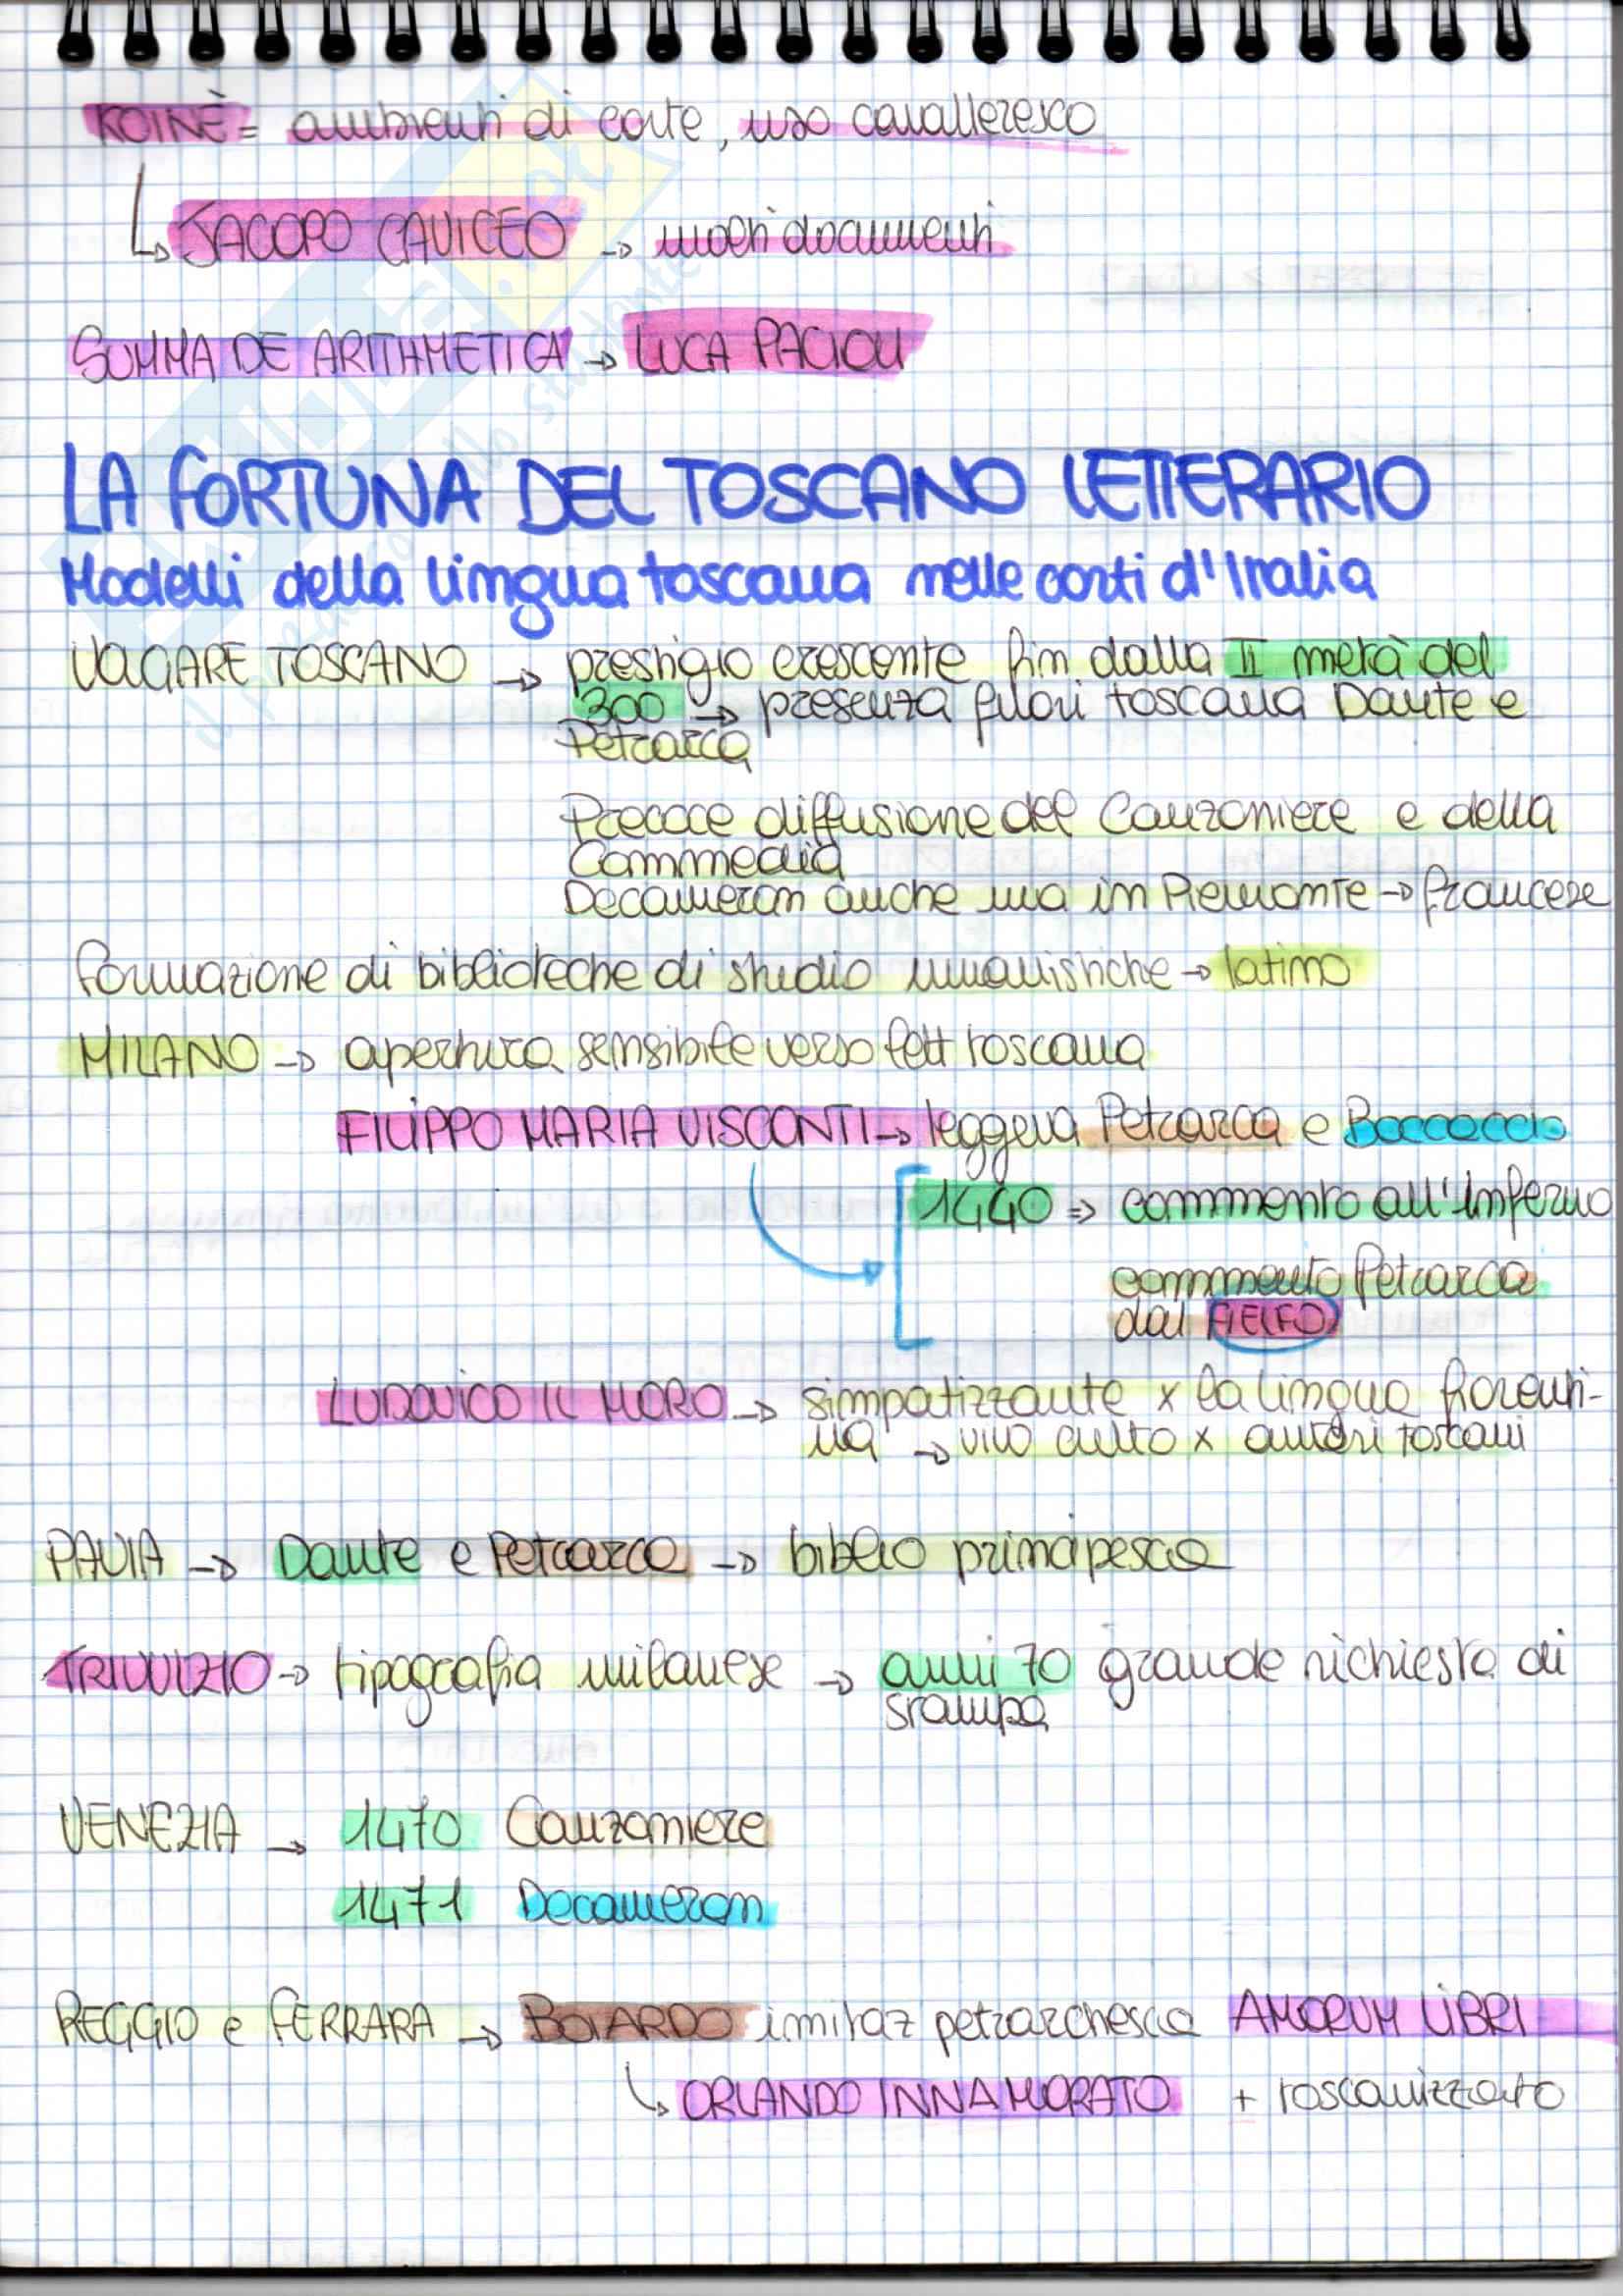 KOINÈ = ambienti di corte, uso cavalleresco
↳ JACOPO CAVICEO → molti documenti
SUMMA DE ARITHMETICA → LUCA PACIOLI
LA FORTUNA DEL TOSCANO LETTERARIO
Modelli della lingua toscana nelle corti d'Italia
VOLGARE TOSCANO → prestigio crescente fin dalla II metà del
300 → presenza fuori toscana Dante e
Petrarca
Precoce diffusione del Canzoniere e della
Commedia
Decameron anche ma in Piemonte → francese
Formazione di biblioteche di studio umanistiche → latino
MILANO → apertura sensibile verso lett toscana
FILIPPO MARIA VISCONTI → leggeva Petrarca e Boccaccio
1440 => commento all'Inferno
commento Petrarca
dal FIELFO
LUDOVICO IL MORO → simpatizzante x la lingua fiorenti-
na → vivo culto x autori toscani
PAVIA → Dante e Petrarca → biblio principesca
TRIVULZIO → tipografia milanese → anni 70 grande richiesta di
stampa
VENEZIA → 1470 Canzoniere
1471 Decameron
REGGIO e FERRARA → BOIARDO imitaz petrarchesca AMORUM LIBRI
↳ ORLANDO INNAMORATO + toscanizzato